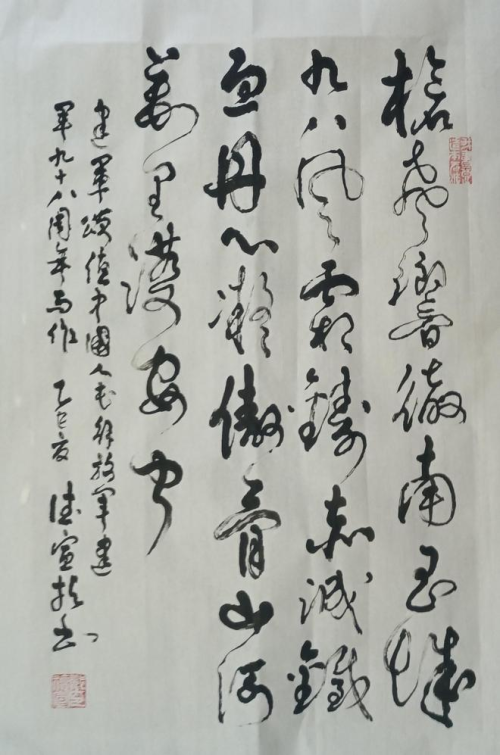 槍聲響徹南昌城
九八風霜鑄赤誠鐵
血丹心凝傲骨山河
萬里護安寧
建軍頌值中國人民解放軍建
軍九十八周年而作 乙巳夏 德宣 書